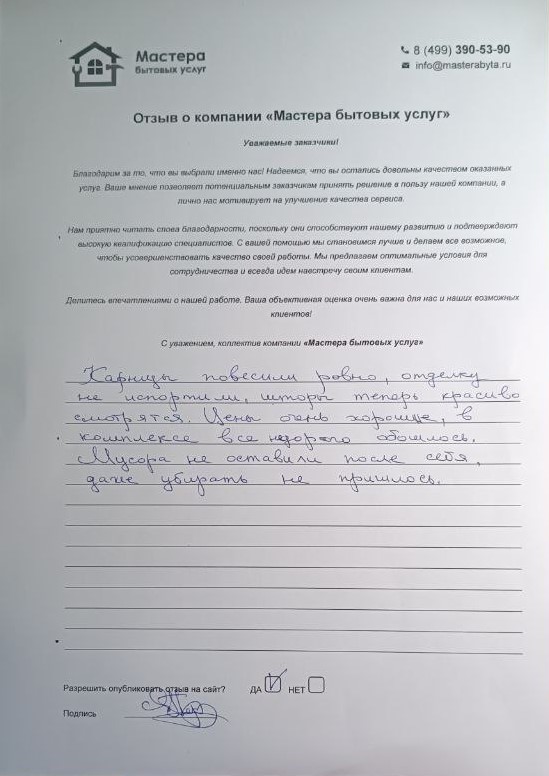 Мастера
бытовых услуг
8 (499) 390-53-90
info@masterabyta.ru
Отзыв о компании «Мастера бытовых услуг»
Уважаемые заказчики!
Благодарим за то, что вы выбрали именно нас! Надеемся, что вы остались довольны качеством оказанных
услуг. Ваше мнение позволяет потенциальным заказчикам принять решение в пользу нашей компании, а
лично нас мотивирует на улучшение качества сервиса.
Нам приятно читать слова благодарности, поскольку они способствуют нашему развитию и подтверждают
высокую квалификацию специалистов. С вашей помощью мы становимся лучше и делаем все возможное,
чтобы усовершенствовать качество своей работы. Мы предлагаем оптимальные условия для
сотрудничества и всегда идем навстречу своим клиентам.
Делитесь впечатлениями о нашей работе. Ваша объективная оценка очень важна для нас и наших возможных
клиентов!
С уважением, коллектив компании «Мастера бытовых услуг»
Карнизы повесили ровно, отделку
не испортили, шторы теперь красиво
смотрятся. Цены очень хорошие, в
комплексе все недорого обошлось.
Мусора не оставили после себя,
даже убирать не пришлось.
Разрешить опубликовать отзыв на сайт? ДА НЕТ
Подпись